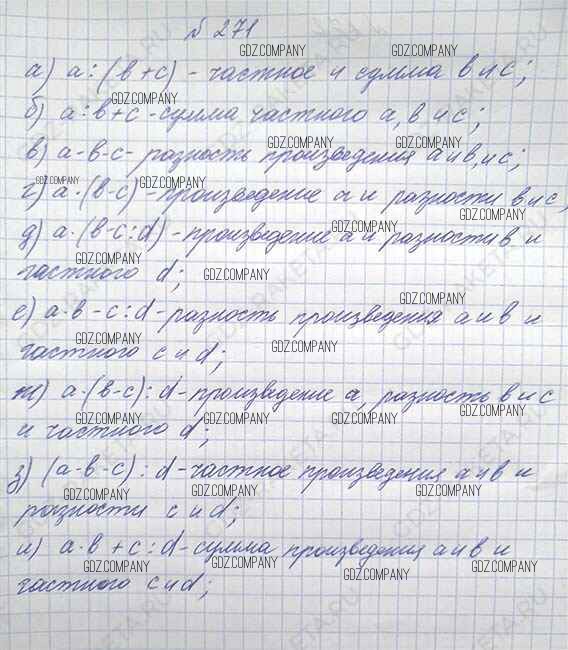 № 271
GDZ.COMPANY GDZ.COMPANY
а) а : (в + с) - частное и сумма в и с;
GDZ.COMPANY
б) а : в + с - сумма частного а, в и с;
GDZ.COMPANY GDZ.COMPANY
в) а - в - с - разность произведения а и в, и с;
GDZ.COMPANY GDZ.COMPANY
г) а · (в - с) - произведение а и разности в и с;
GDZ.COMPANY
д) а · (в - с : d) - произведение а и разности в и
GDZ.COMPANY
GDZ.COMPANY
частного d;
GDZ.COMPANY
GDZ.COMPANY
е) а · в - с : d - разность произведения а и в и
GDZ.COMPANY GDZ.COMPANY
частного с и d;
ж) а · (в - с) : d - произведение а, разность в и с
GDZ.COMPANY GDZ.COMPANY GDZ.COMPANY GDZ.COMPANY
и частного d;
з) (а - в - с) : d - частное произведения а и в и
GDZ.COMPANY GDZ.COMPANY GDZ.COMPANY
разности с и d;
и) а · в + с : d - сумма произведения а и в и
GDZ.COMPANY GDZ.COMPANY GDZ.COMPANY GDZ.COMPANY
частного с и d;